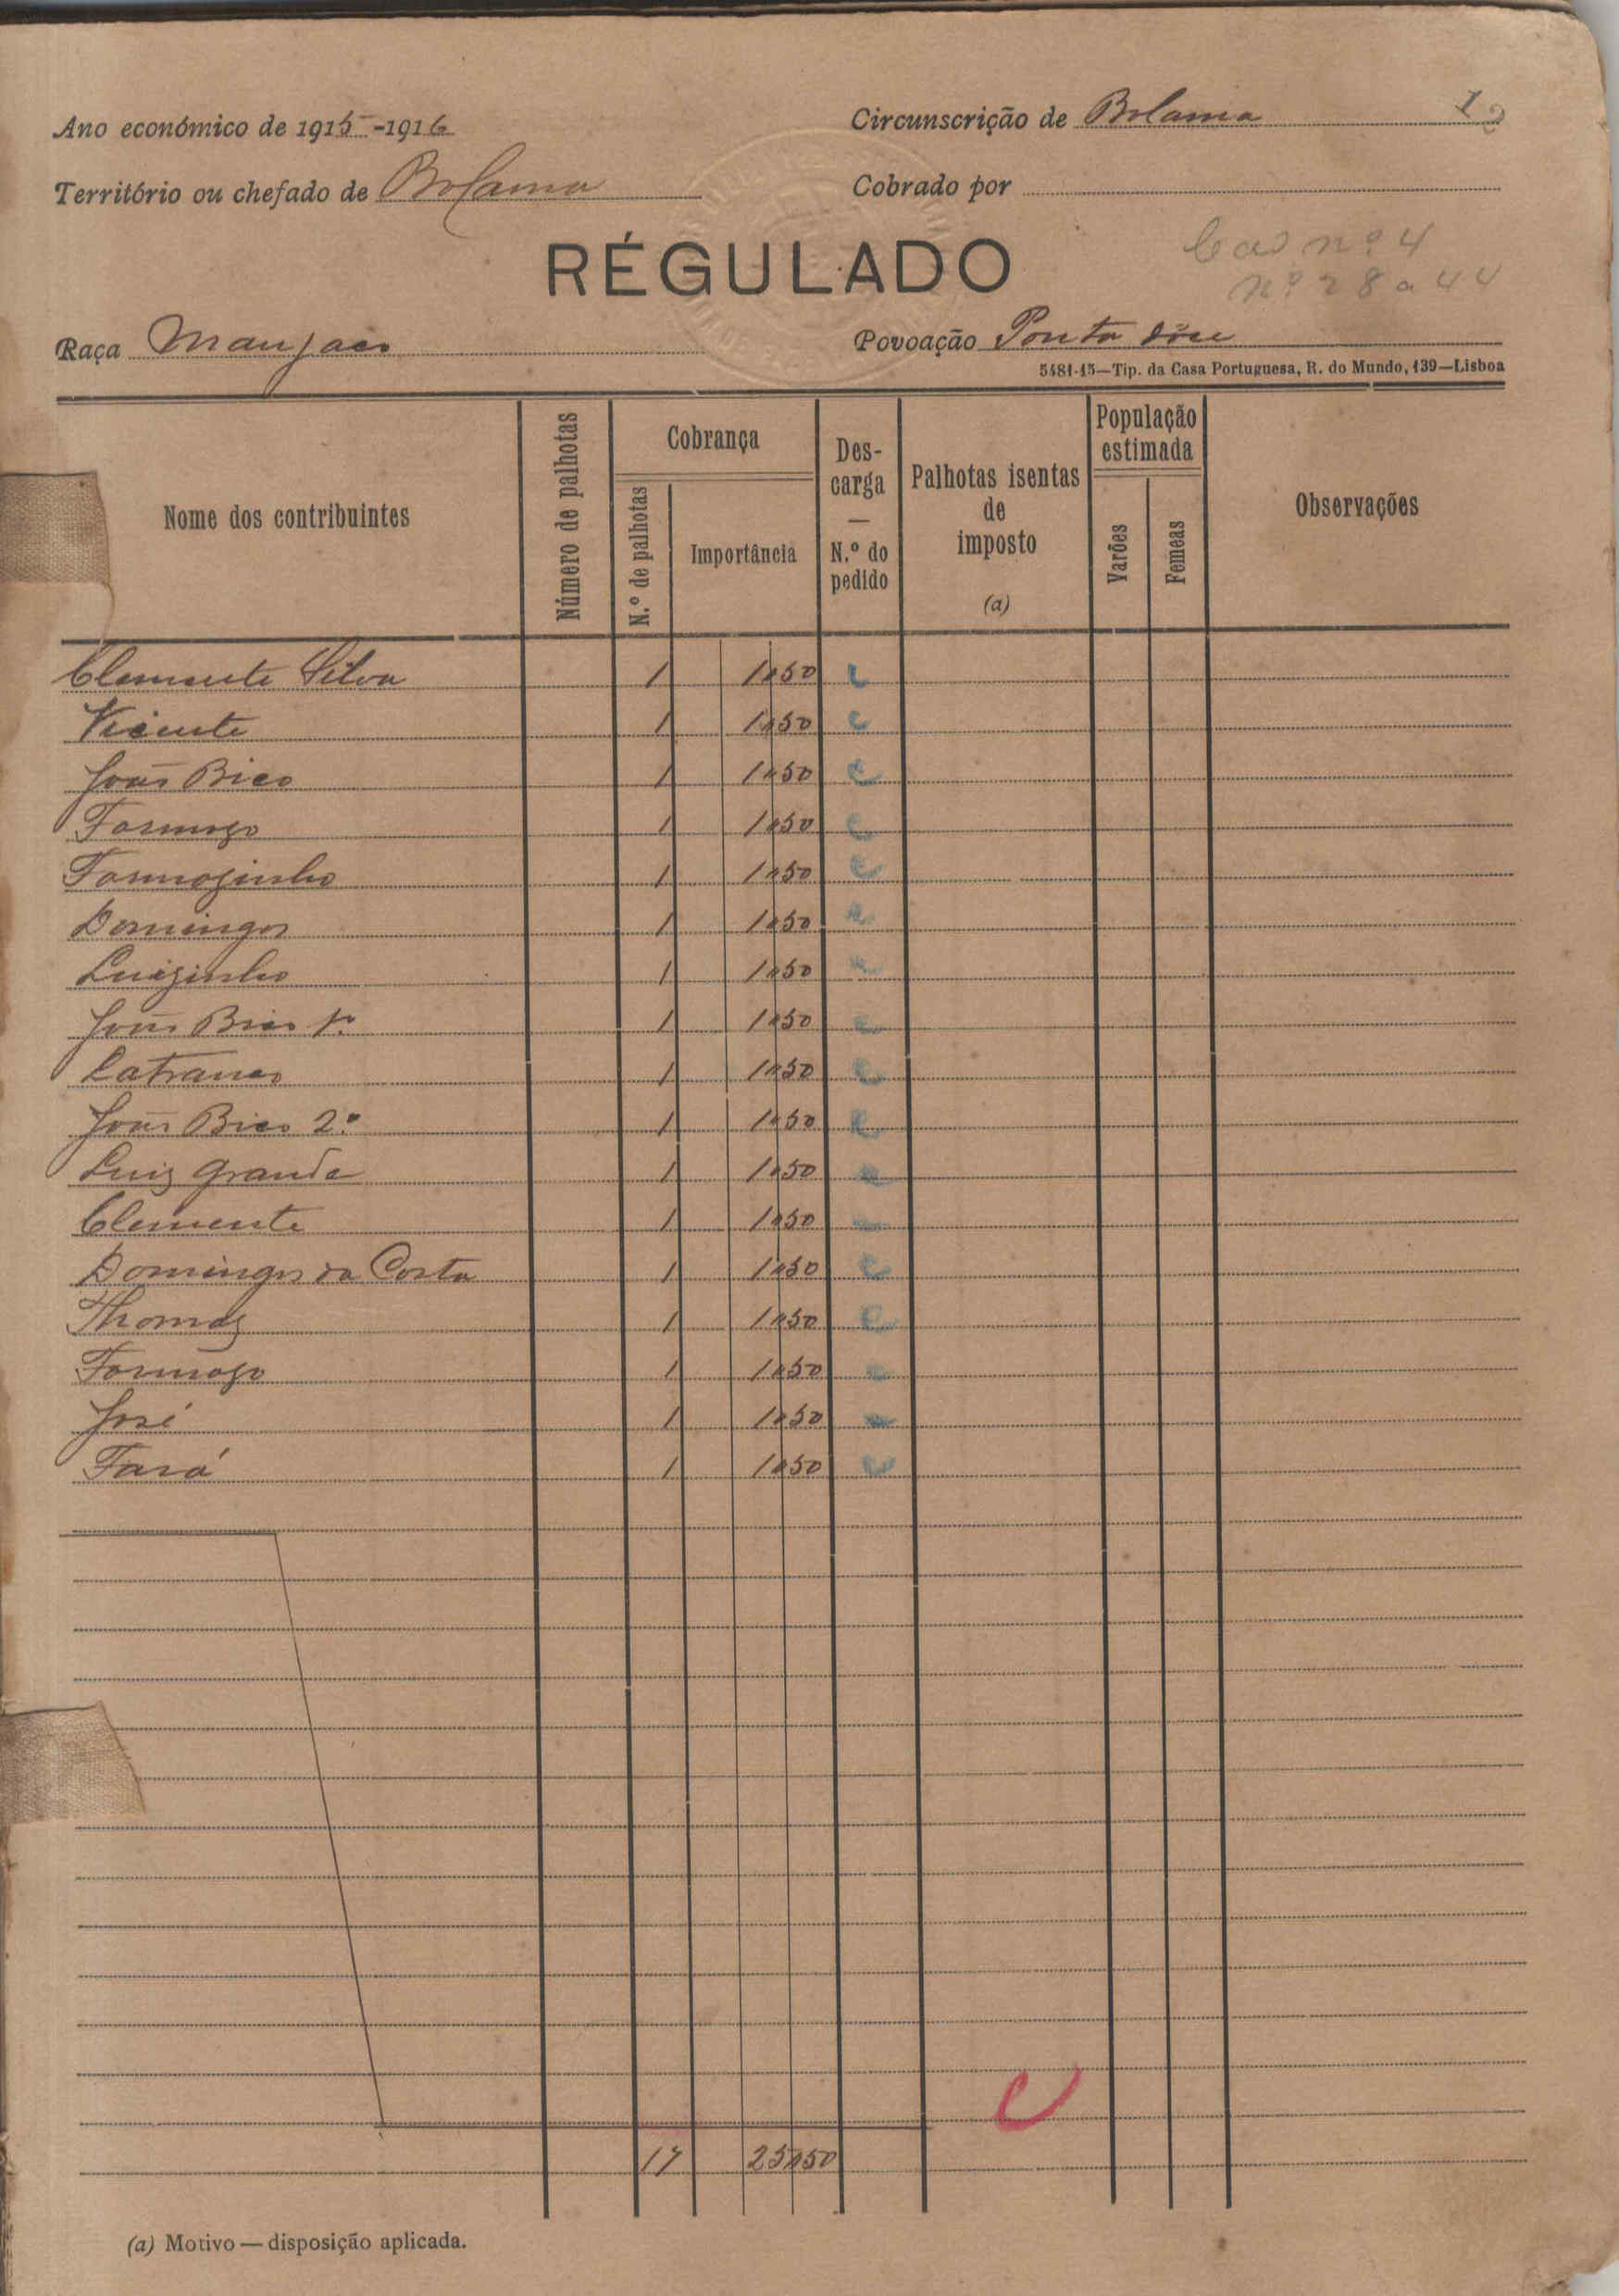 Ano económico de 1915-1916
Circunscrição de Bolama
1
Território ou chefado de Bolama
Cobrado por
RÉGULADO
Cad nº 4
nº 28 a 44
Raça Manjaco
Povoação Ponta
5481-15—Tip. da Casa Portuguesa, R. do Mundo, 139—Lisboa
Nome dos contribuintes
Número de palhotas
Cobrança
N.º de palhotas
Importância
Des-
carga
—
N.º do
pedido
Palhotas isentas
de
imposto
(a)
População
estimada
Varões
Femeas
Observações
Clemente Silva 1 1$50 c
Vicente 1 1$50 c
João Bico 1 1$50 c
Formozo 1 1$50 c
Formozinho 1 1$50 c
Domingos 1 1$50 c
Luizinho 1 1$50 c
João Bico 1º 1 1$50 c
1 1$50 c
João Bico 2º 1 1$50 c
Luiz Grande 1 1$50 c
Clemente 1 1$50 c
Domingos da Costa 1 1$50 c
Thomaz 1 1$50 c
Formozo 1 1$50 c
José 1 1$50 c
Fará 1 1$50 c
C
17 25$50
(a) Motivo — disposição aplicada.